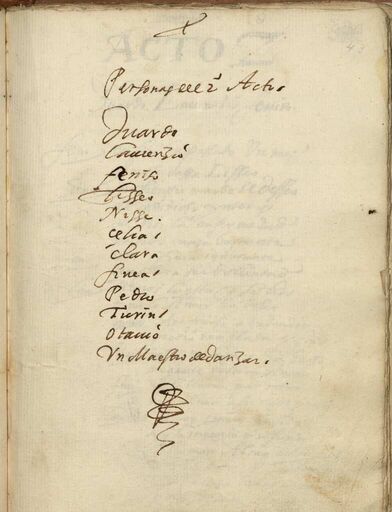 Personas del 2º Acto
Duardo
Laurencio
feniso
Liseo
Nise.
Celia
Clara
finea
Pedro
Turin
Otauio
Vn Maestro de danzar.